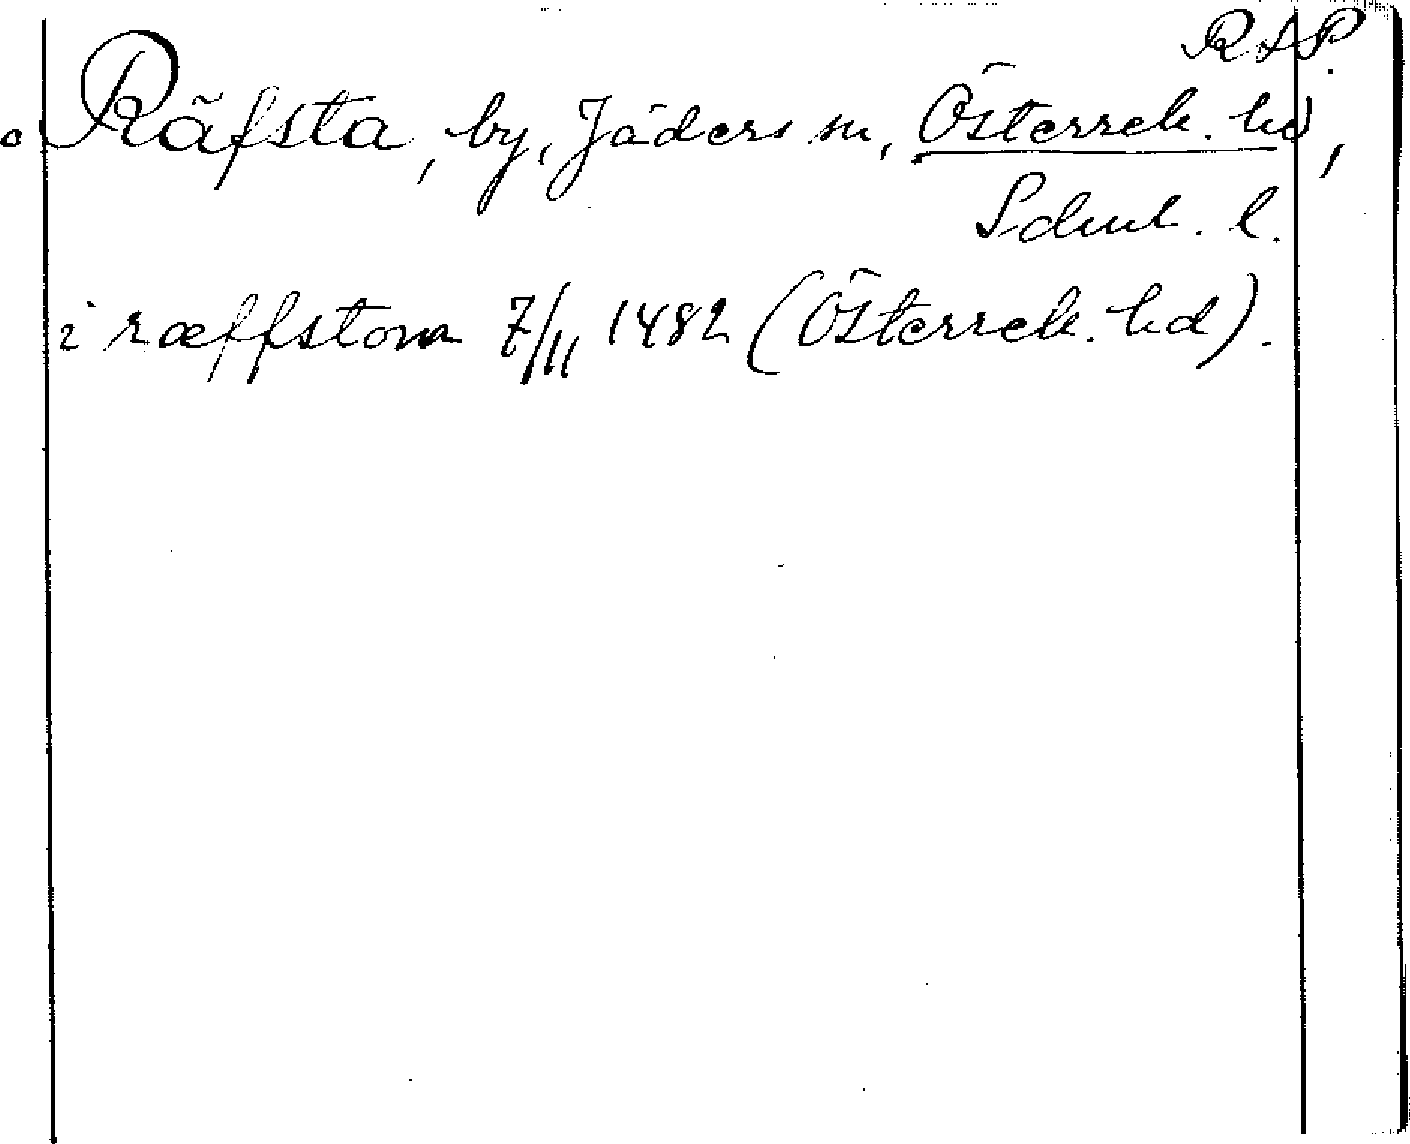 RAP.
Räfsta, by, Jäders sn, Österrek. hd,
Sdml. l.
i ræffstom 7/11 1482 (Österrek. hd).